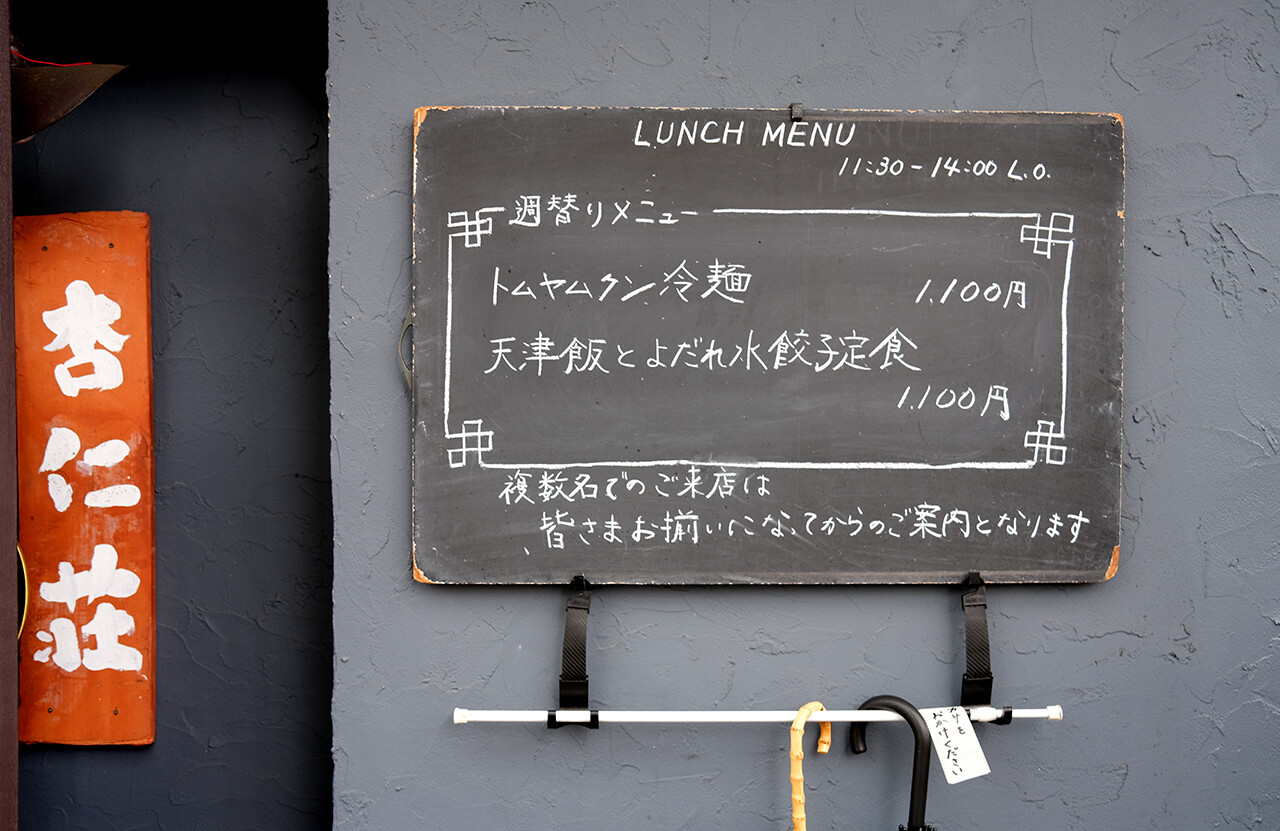 杏仁荘
LUNCH MENU
11:30-14:00 L.O.
週替りメニュー
トムヤムクン冷麺 1.100円
天津飯とよだれ水餃子定食
1.100円
複数名でのご来店は
皆さまお揃いになってからのご案内となります
カサを
おかけください